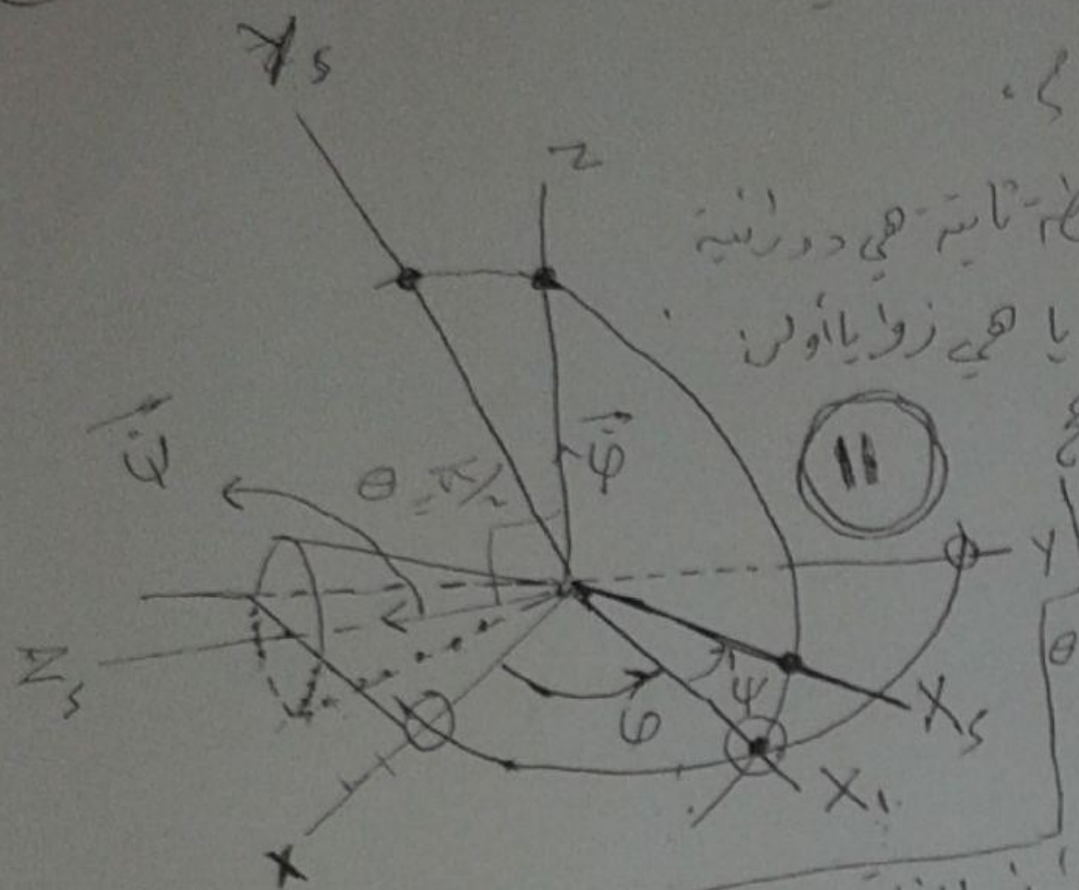 Ys
Z
ثابتة هي دورانية
يا هي زوايا أولر:
11
φ̇
ψ̇
θ = π/2
Y
Zs
θ
ψ
φ
Xs
X₁
X